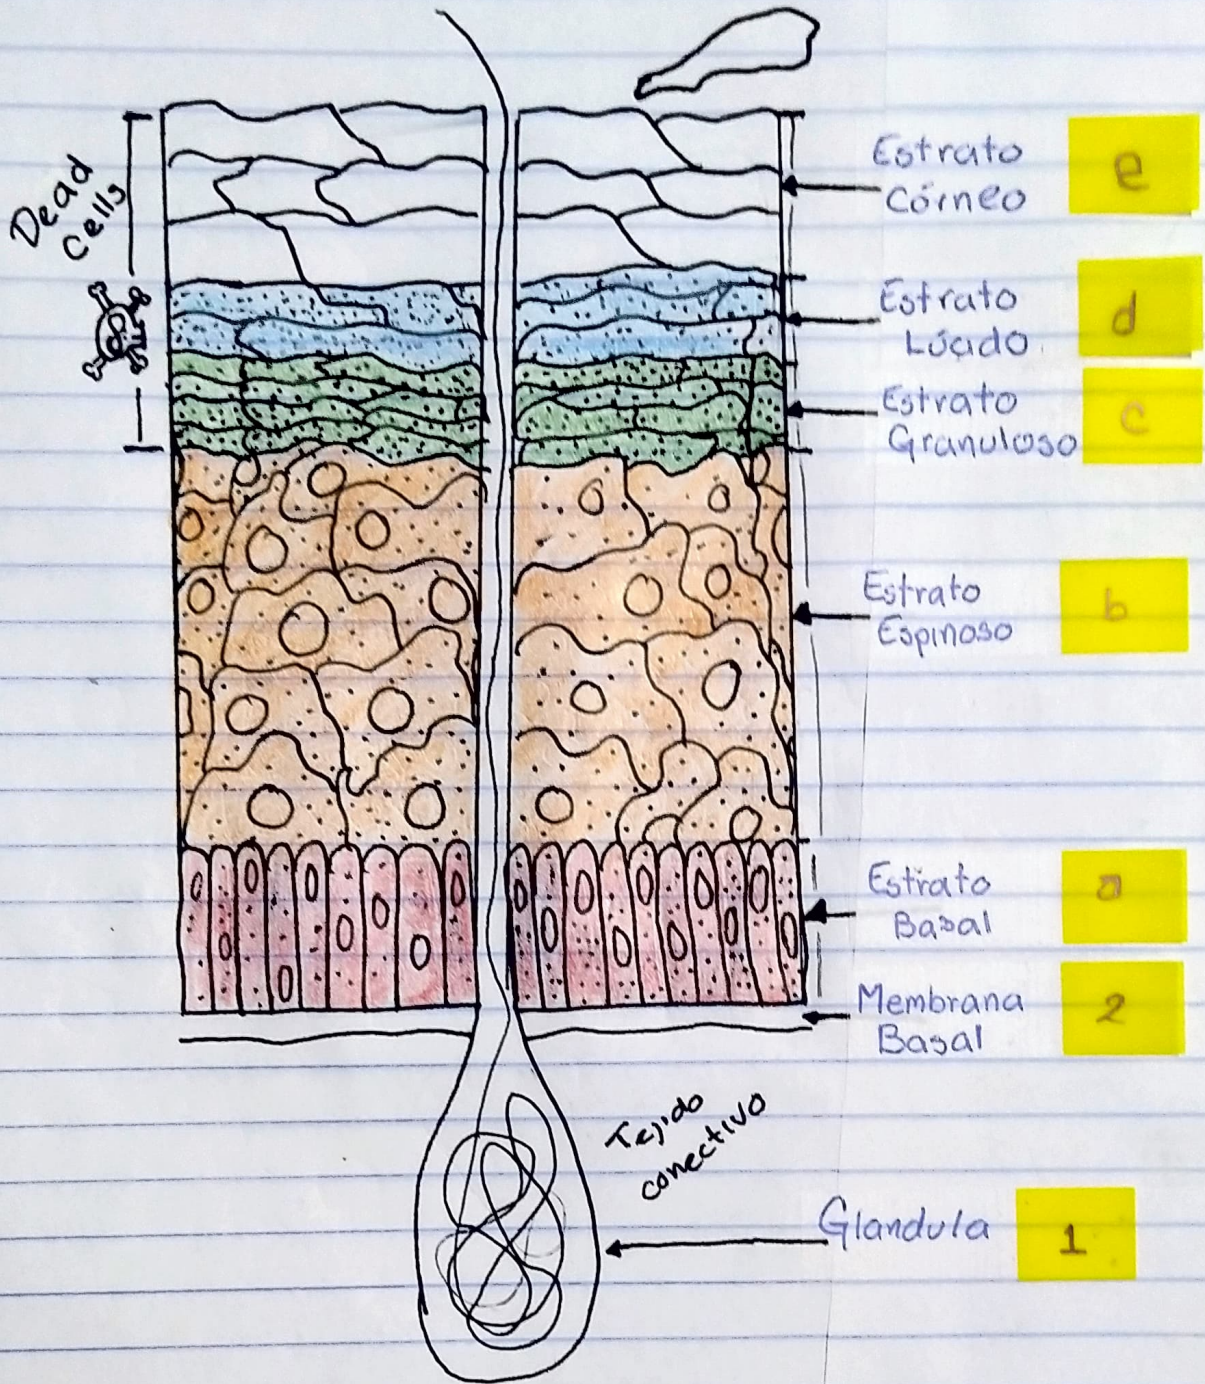 Dead
Cells
Estrato
Córneo
e
Estrato
Lúcido
d
Estrato
Granuloso
c
Estrato
Espinoso
b
Estrato
Basal
a
Membrana
Basal
2
Tejido
conectivo
Glandula
1